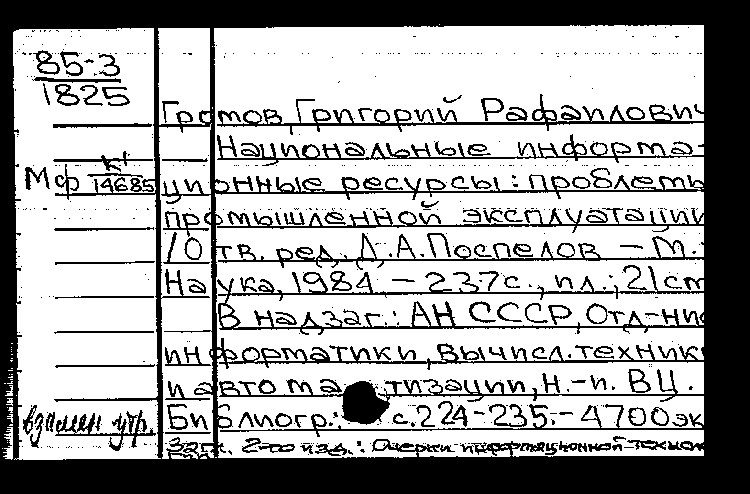 85-3
1825
Громов, Григорий Рафаилович
Национальные информа-
Мф К1
14685
ционные ресурсы: проблемы
промышленной эксплуатации
/Отв. ред. Д.А.Поспелов - М.:
Наука, 1984. - 237с., ил.; 21см
В надзаг.: АН СССР, Отд-ние
информатики, вычисл. техники
и автоматизации, н.-и. ВЦ.
Библиогр.: с.224-235. - 4700эк
взамен утр.
Загл. 2-го изд.: Очерки информационной